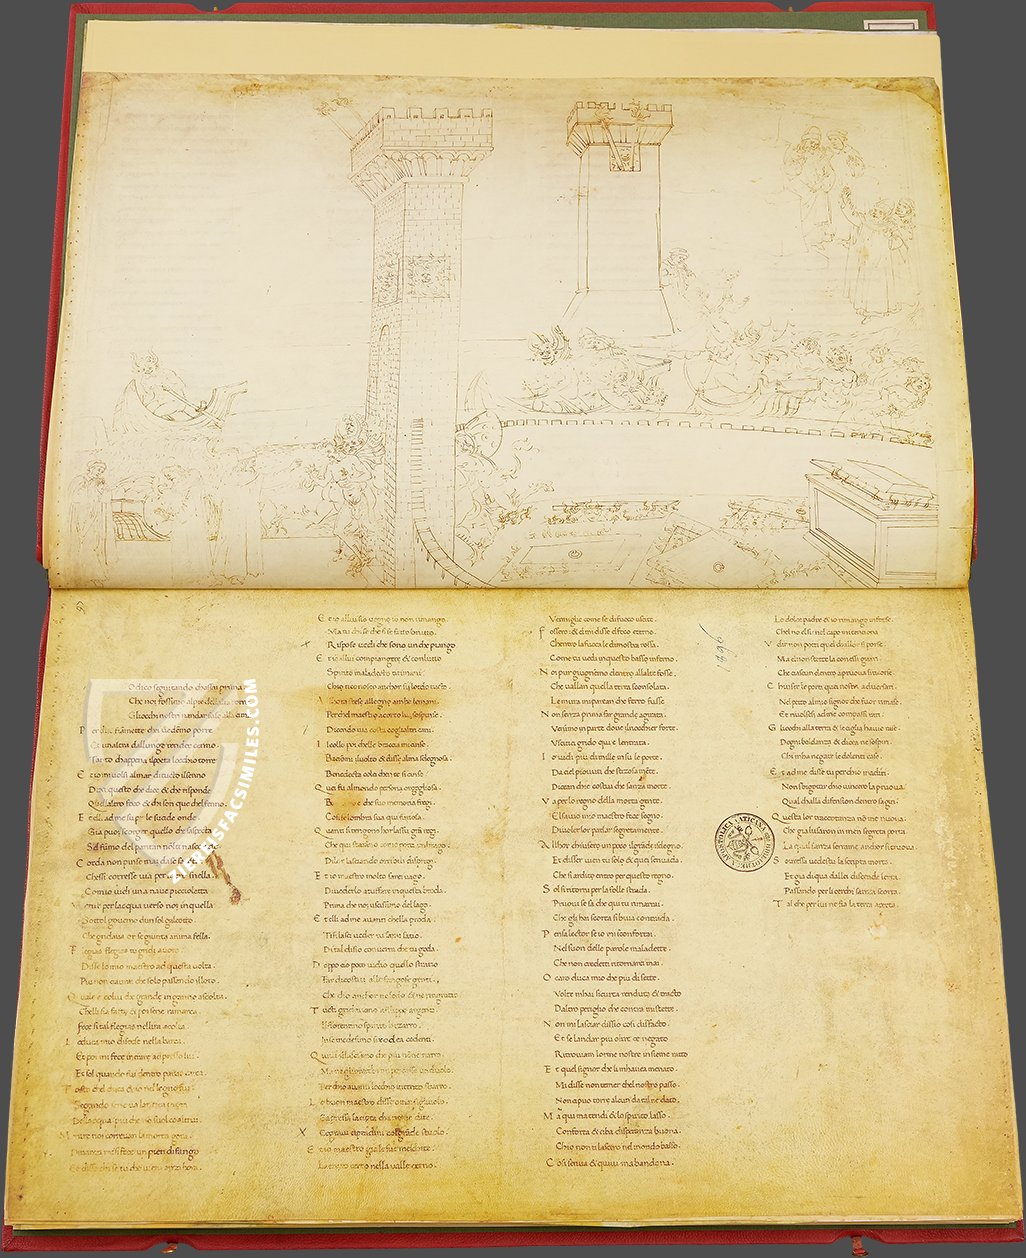 O dico seguitando chassai prima
Che noi fossimo al pie dellalta
Gliocchi nostri nandar suso alla
P
Et unaltra dallungi render cenno.
Tanto chappena il potea locchio torre
E t io mi volsi al mar di tucto il senno
Dissi questo che dice & che risponde
Quellaltro foco & chi son que chel fenno.
E t elli ad me su per le sucide onde
Gia puoi scorger quello che saspecta
Sel fumo del pantan nol ti nasconde
C orda non pinse mai da se
Chessi corresse via per laer snella.
Comio vidi una nave piccioletta
V enir per lacqua verso noi in quella
Sottol governo dun sol galeotto.
Che gridava or se giunta anima fella.
F legias flegias tu gridi avoto
Disse lo mio maestro ad questa volta.
Piu non ci avrai che solo passando il loto.
Q uale e colui che grande inganno ascolta.
Che li sia facto & poi sene ramarca.
Fecesi tal flegias nellira accolta.
L o duca mio discese nella barca.
Et poi mi fece intrare appresso lui.
Et sol quando fui dentro parve carca.
T osto chel duca & io nel legno fui.
Segando sene va lantica prora
Dellacqua piu che non suol co altrui.
M entre noi corravam la morta gora.
Dinanzi mi si fece un pien di fango
Et disse chi se tu che vieni anzi hora.
E t io allui sio vegno io non rimango.
Ma tu chi se che si se fatto brutto.
X Rispose vedi che sono un che piango
E t io allui con piangere & con lutto
Spirito maladecto ti rimani
Chio ti conosco anchor sia lordo tucto.
A llhora stese al legno ambe le mani.
Perchel maestro accorto lo sospinse.
Dicendo via costa cogli altri cani.
I l collo poi colle braccia mi cinse.
Basciommi il volto & disse alma sdegnosa.
Benedecta colei che in te si cinse
Q uei fu al mondo persona orgogliosa.
B e che sua memoria fregi.
Cosi se lombra sua qui furiosa.
Q uanti si tengono hor lassu gra regi.
Che qui staranno come porci in brago.
Di se lasciando orribili dispregi.
E t io maestro molto sarei vago.
Di vederlo attuffare in questa broda.
Prima che noi uscissimo del lago.
E t elli ad me avanti che la proda
Ti si lasci veder tu sarai satio.
Di tal disio converra che tu goda.
D oppo cio poco vidio quello stratio
Far di costui alle fangose genti.
Che dio anchor ne lodo & ne ringratio
T ucti gridavano ad filippo argenti.
Il fiorentino spirito bizzarro.
In se medesimo si rodea co denti.
Q uivi il lasciamo che piu non ne narro.
Ma negliorecchi mi percosse un duolo.
Perchio avanti locchio intento sbarro.
L o buon maestro disse omai figliuolo.
Sappressa la cipta cha nome dite.
X Co gravi ciptadini col grande stuolo.
E t io maestro gia le sue meschite.
La entro certo nella valle cerno.
Vermiglie come se di fuoco uscite.
F ossero. & elmi disse el foco eterno.
Chentro laffuoca le dimostra rossa.
Come tu vedi in questo basso inferno.
N oi pur giugnemo dentro allalte fosse.
Che vallan quella terra sconsolata.
Le mura mi parean che ferro fusse
N on senza prima far grande agirata.
Venimo in parte dove il nocchier forte.
Usciteci grido qui e lentrata.
I o vidi piu di mille in su le porte.
Da ciel piovuti che stizosamete.
Dicean chi e costui che sanza morte.
V a per lo regno della morta gente.
El savio mio maestro fece segno.
Di voler lor parlar segretamente.
A llhor chiusero un poco il gran disdegno.
Et disser vieni tu solo & quei senvada.
Che si ardito entro per questo regno.
S ol si ritorni per la folle strada.
Pruovi se sa che qui tu rimarrai.
Che gli hai scorta si buia contrada.
P ensa lector se io mi sconfortai.
Nel suon delle parole maladette.
Che non credetti ritornarci mai.
O caro duca mio che piu di sette.
Volte mhai sicurta renduta & tracto
Daltro periglio che contra mi stette.
N on mi lasciar dissio cosi disfacto.
Et se landar piu oltre ce negato
Ritroviam lorme nostre insieme ratto
E t quel signor che li mhavea menato.
Mi disse non temer chel nostro passo.
Non ci puo torre alcun da tal ne dato.
M a qui mattendi & lo spirito lasso.
Conforta & ciba di speranza buona.
Chio non ti lascero nel mondo basso.
C osi senva & quivi mabandona.
Lo dolce padre & io rimango inforse.
Chel no el si nel capo mi tenciona
V dir non potei quel challor si porse.
Ma ei non stette la con essi guari.
Che ciascun dentro a pruova si ricorse
C hiuser le porte que nostri adversari.
Nel petto al mio signor che fuor rimase.
Et rivolsesi ad me con passi rari.
G liocchi alla terra & le ciglia havie rase.
Dogni baldanza & dicea ne sospiri.
Chi mha negate le dolenti case.
E t ad me disse tu perchio madiri.
Non sbigottir chio vincero la pruova.
Qual challa difension dentro sagiri.
Q uesta lor tracotanza no me nuova.
Che gia lusaron in men segreta porta
La qual sanza serrame anchor si truova.
S ovressa vedestu la scripta morta.
Et gia di qua dallei discende lerta.
Passando per li cerchi senza scorta.
T al che per lui ne fia la terra aperta.
1896
BIBLIOTHECA APOSTOLICA VATICANA
ZIEREISFACSIMILES.COM